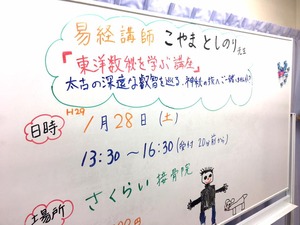 易経講師 こやまとしのり先生
「東洋数秘を学ぶ講座」
太古の深遠な叡智を巡る、神秘の旅へご一緒に
H29
日時 1月28日(土)
13:30〜16:30(受付20分前から)
さくらい接骨院
場所